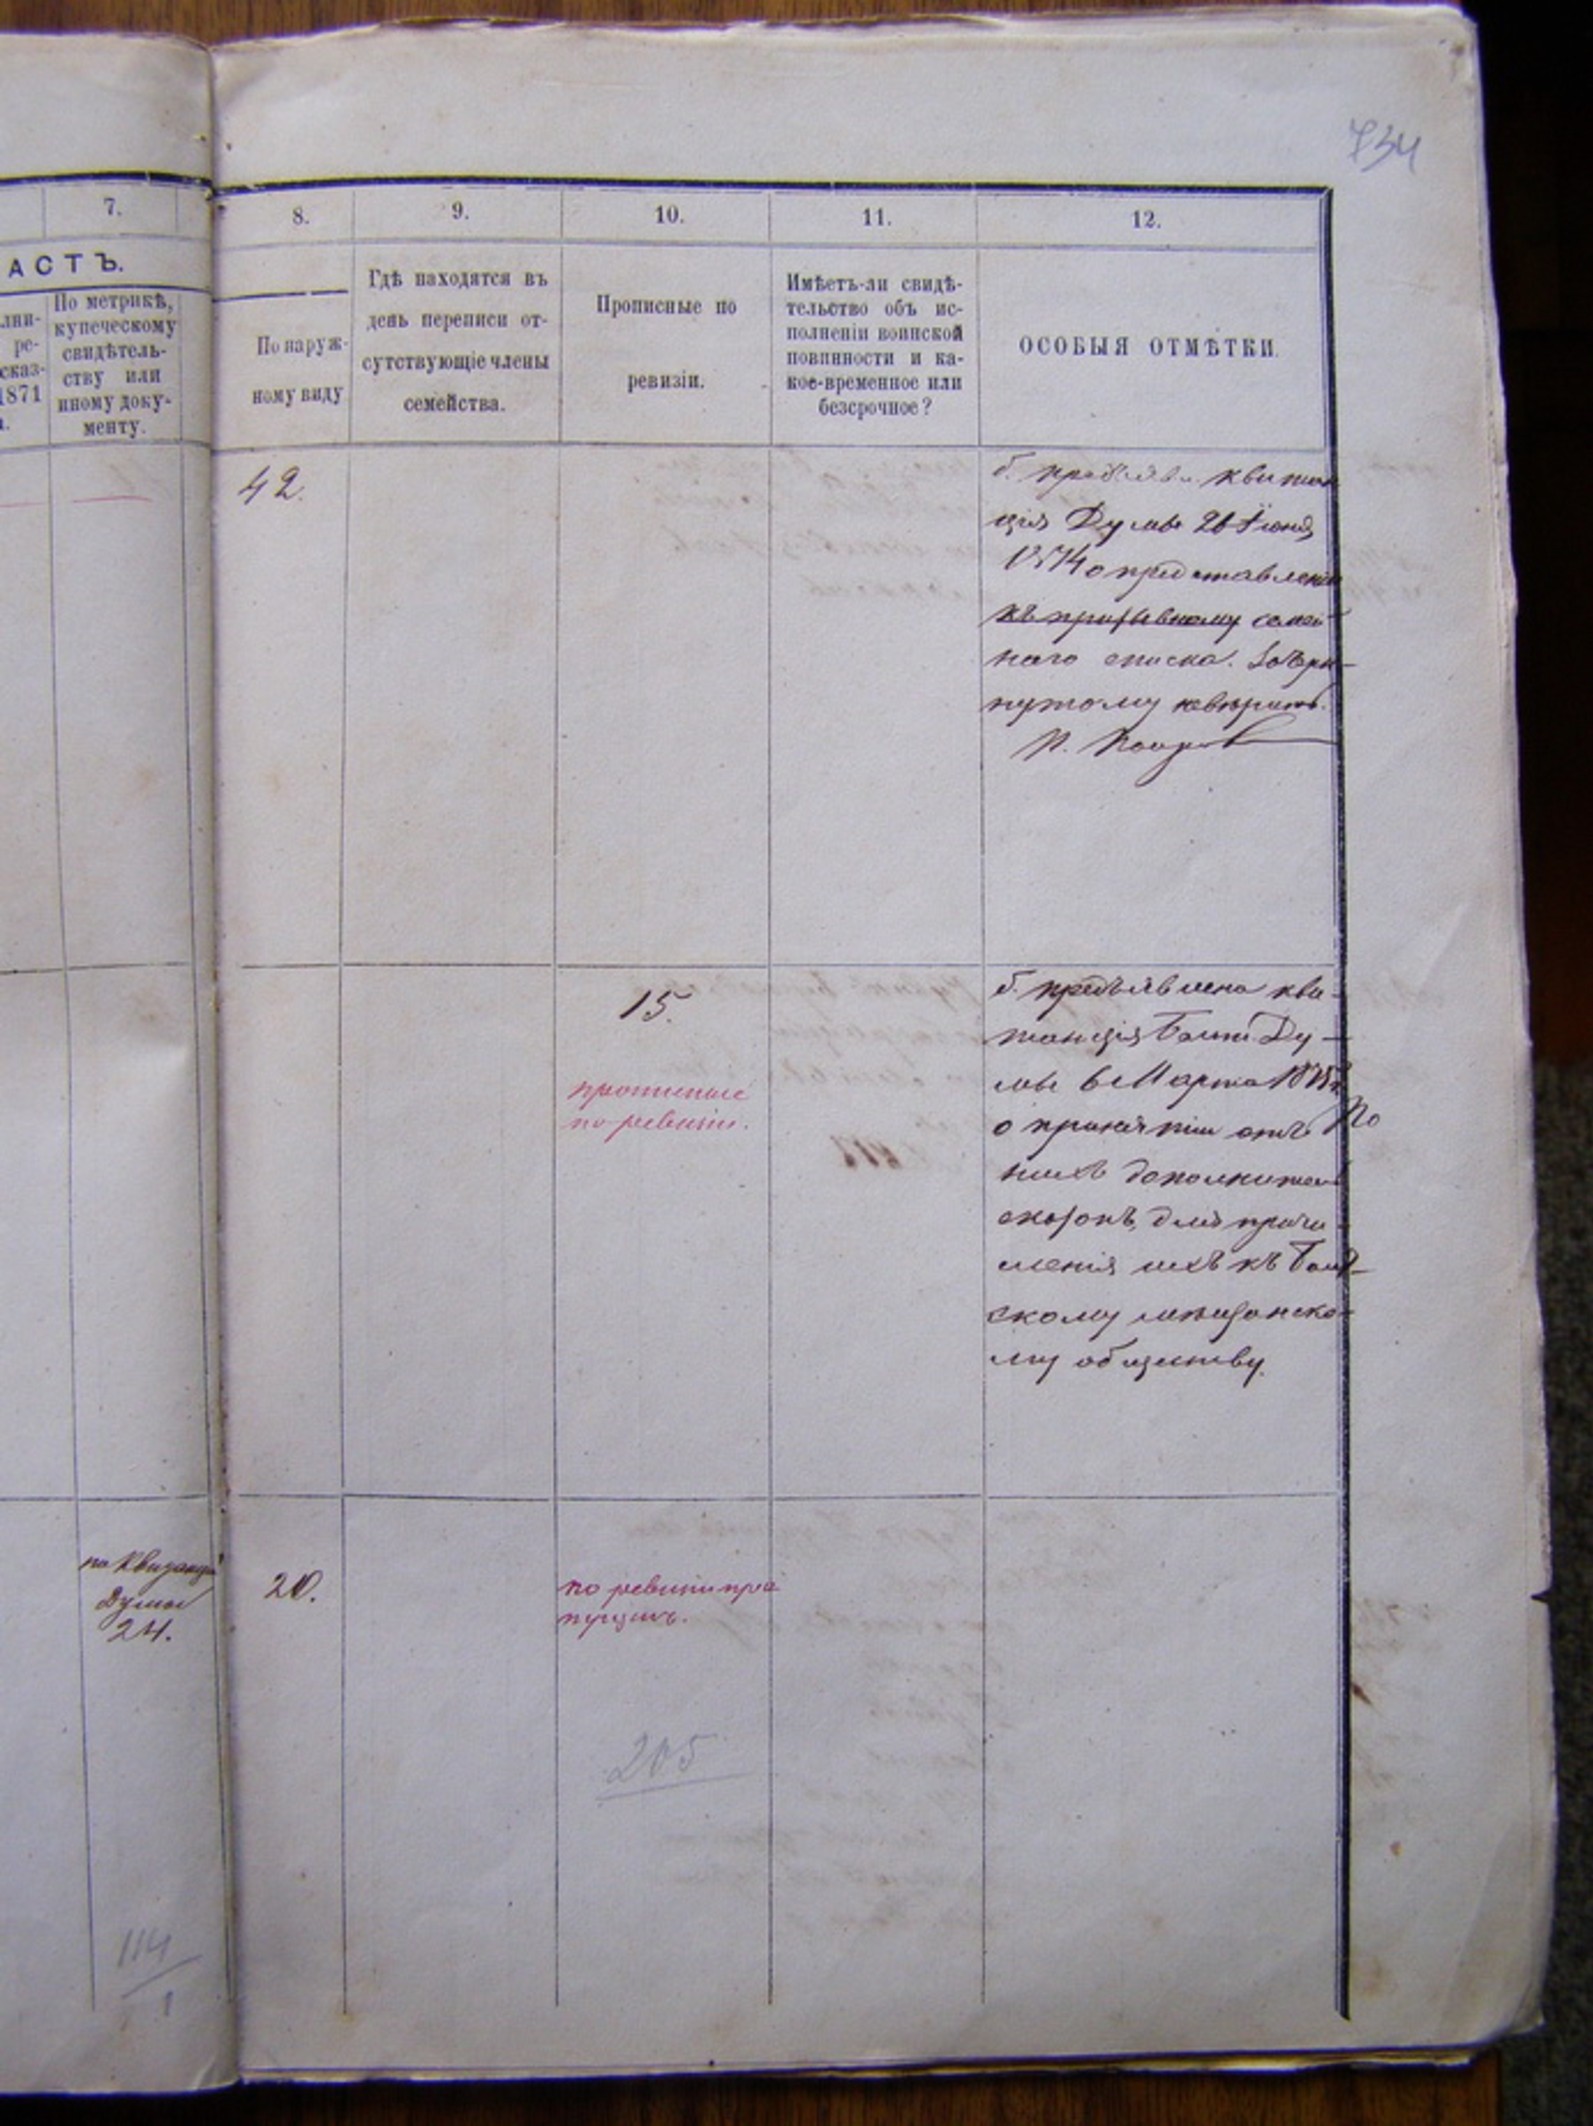 734
7.
8.
9.
10.
11.
12.
АСТЪ.
лни-
ре-
сказ-
1871
По метрикѣ,
купеческому
свидѣтель-
ству или
иному доку-
менту.
По наруж-
ному виду
Гдѣ находятся въ
день переписи от-
сутствующіе члены
семейства.
Прописные по
ревизіи.
Имѣетъ-ли свидѣ-
тельство объ ис-
полненіи воинской
повинности и ка-
кое-временное или
безсрочное?
ОСОБЫЯ ОТМѢТКИ.
42.
б. квитан
ція Думы 26 Іюня
1874 о представленіи
къ призывному семей
наго списка.
15.
по ревизіи.
б. предъявлена кви-
танція Думы
6 Марта
о принятіи отъ
нихъ дополнител
сказокъ, для причи-
сленія ихъ къ
скому мѣщанско-
му обществу.
по Квитанціи
Думы
24.
20.
по ревизіи про
пущенъ.
205
114
1